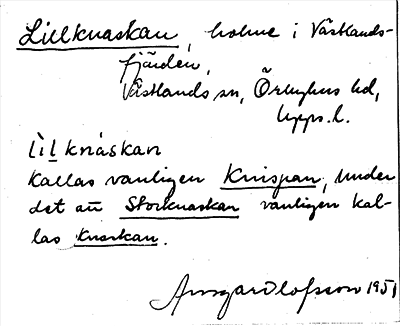 Lillknaskan, holme i Västlands-
fjärden,
Västlands sn, Örbyhus hd,
Upps. l.
lìl knáskan
Kallas vanligen Knispan, under
det att Storknaskan vanligen kal-
las Knaskan.
Ansgar Olofsson 1951